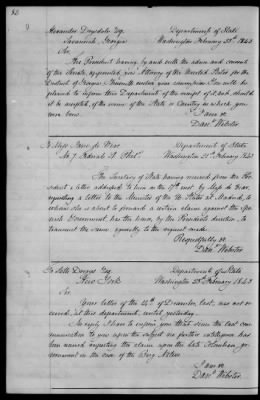 Alexander Drysdale Esq. Department of State
Savannah, Georgia Washington February 25th 1843
Sir.
The President having by and with the advice and consent
of the Senate, appointed you Attorney of the United States for the
District of Georgia I herewith enclose your commission. You will be
pleased to inform this Department of the receipt of it, and should
it be accepted, of the name of the State or Country in which you
were born.
I am &c
Danl. Webster
Department of State
Washington 25th February 1843
The Secretary of State having received from the
a letter addressed to him on the 17th inst by
requesting a letter to the Minister of the U. States at Madrid, to
whom she is about to forward a certain claim against the
Government has the honor, by the Presidents direction, to
transmit the same agreeably to the request made
Respectfully &c
Danl. Webster
Department of State
New York Washington 25th February 1843
Sir.
Your letter of the 24th of December, last, was not re-
ceived at this department until yesterday.
In reply I have to inform you that since the last com-
munication to you upon the subject no further intelligence has
been received respecting the claim upon the
government in the case of the Brig
I am &c
Danl. Webster